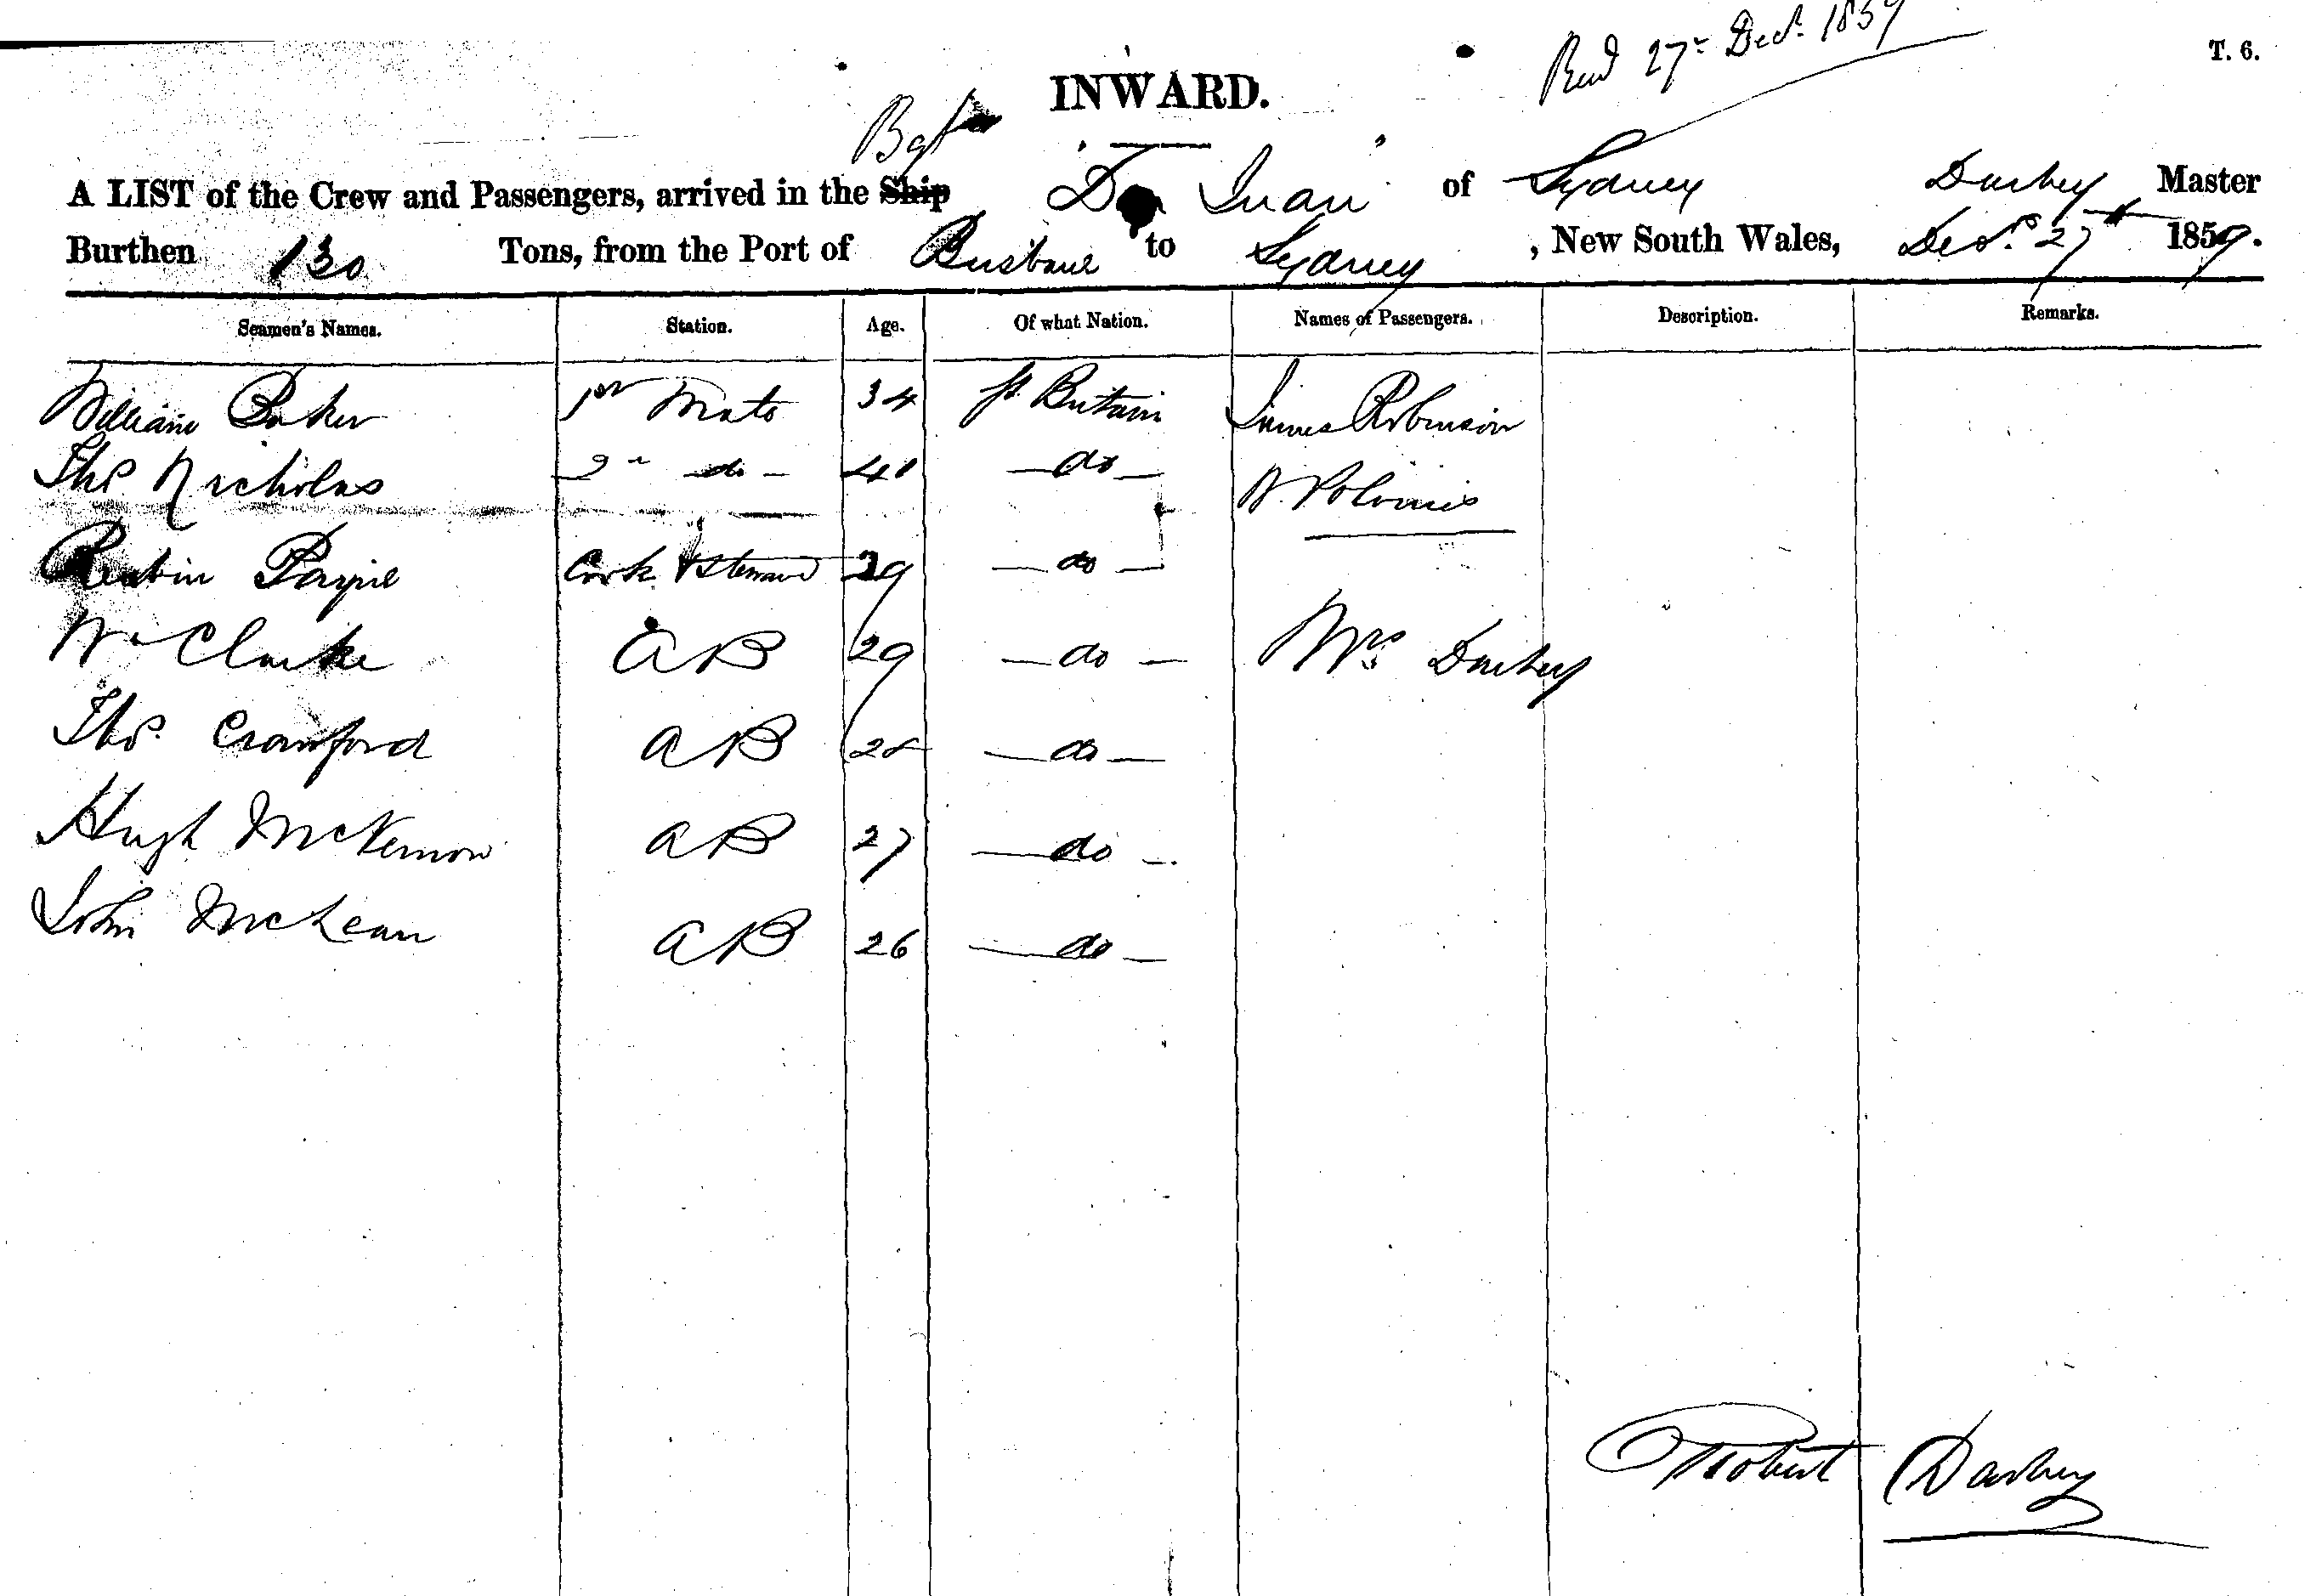 Recd 27th Decr. 1859
T. 6.
INWARD.
A LIST of the Crew and Passengers, arrived in the Ship "Don Juan" of Sydney Darbey Master
Burthen 130 Tons, from the Port of Brisbane to Sydney, New South Wales, Decr. 27th 1859.
Seamen's Names. Station. Age. Of what Nation. Names of Passengers. Description. Remarks.
William Baker 1st Mate 34 Gt. Britain James Robinson
Thos Nicholas 2nd do 40 do
Payne Cook & Steward 29 do
Wm Clarke AB 29 do Mrs Darbey
Thos. Crawford AB 28 do
Hugh McKernon AB 27 do
John McLean AB 26 do
Robert Darbey